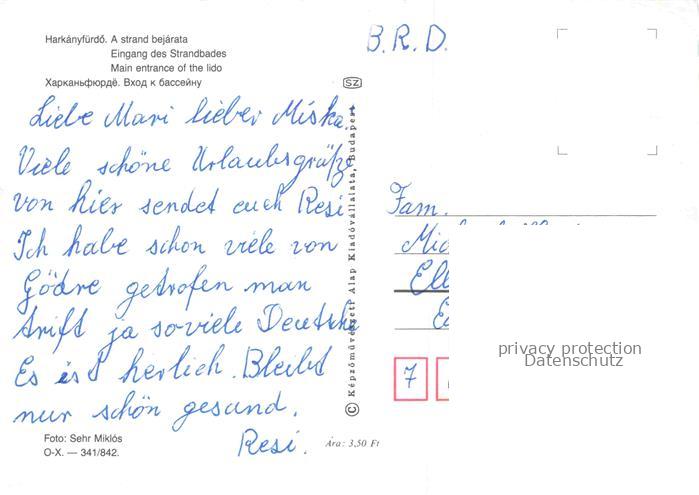 Harkányfürdő. A strand bejárata
Eingang des Strandbades
Main entrance of the lido
Харканьфюрдё. Вход к бассейну
Liebe Mari lieber Miska,
Viele schöne Urlaubsgrüße
von hier sendet euch Resi
Ich habe schon viele von
Gödre getrofen man
trift ja soviele Deutsche
Es ist herlich. Bleibt
nur schön gesund.
Resi.
Foto: Sehr Miklós
O-X. — 341/842.
Ára: 3,50 Ft
SZ
© Képzőművészeti Alap Kiadóvállalata, Budapest
B.R.D.
Fam.
7
privacy protection
Datenschutz